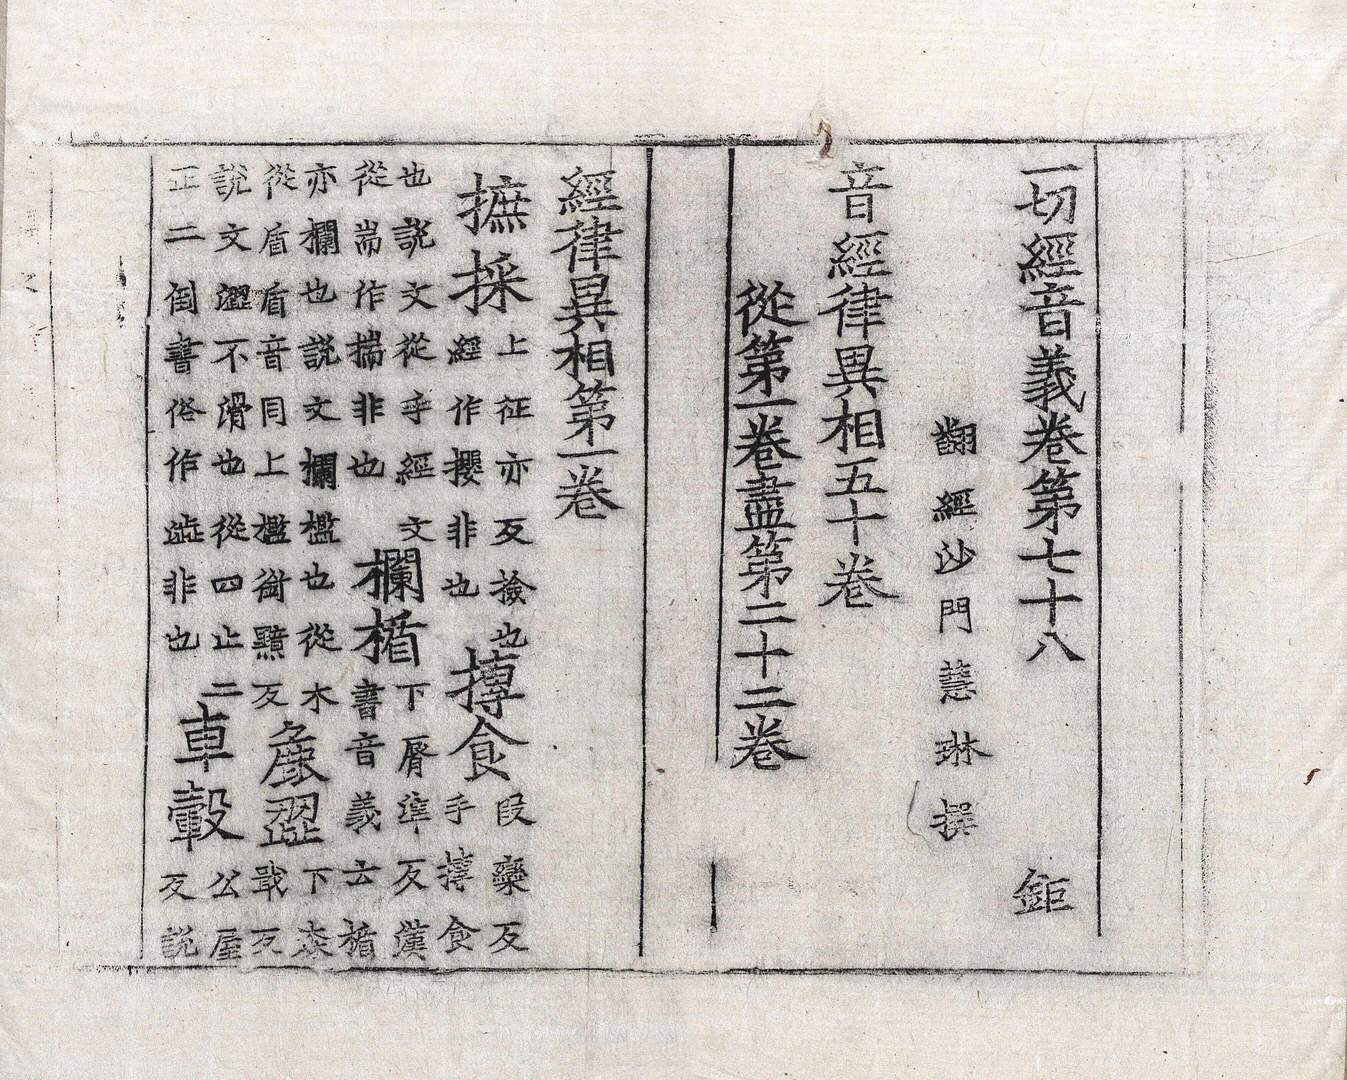 一切經音義卷第七十八 鉅
翻經沙門慧琳撰
音經律異相五十卷
從第一卷盡第二十二卷
經律異相第一卷
摭採 上征亦反撿也經作攖非也 摶食 段欒反手摶食
也說文從手經文從耑作揣非也 欄楯 下脣準反漢書音義云楯
亦欄也說文欄檻也從木從盾盾音同上檻銜黤反 麁澀 下森戢反
說文澀不滑也從四止二正二倒書俗作澁非也 車轂 公屋反說